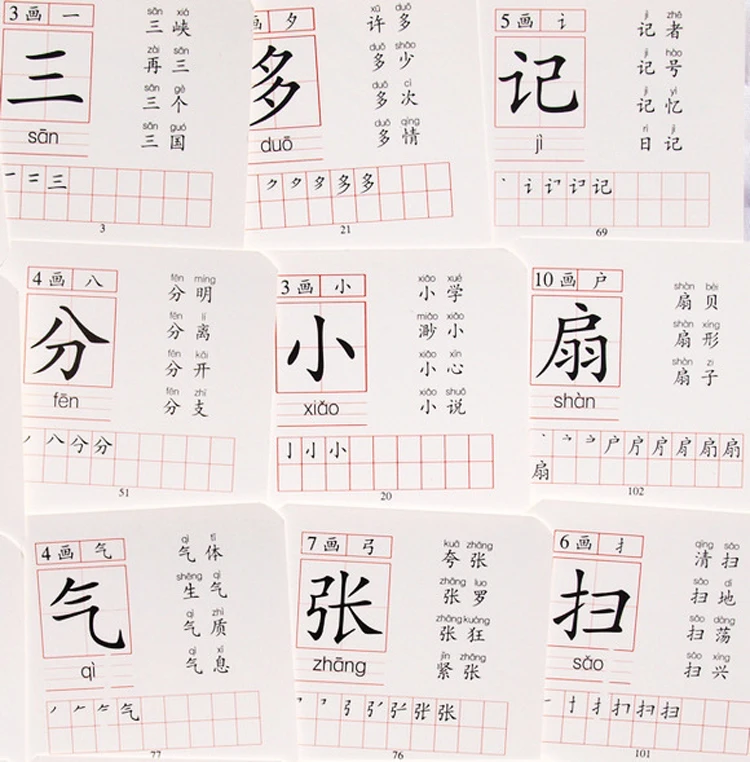 3画 一
sān xiá
三峡
zài sān
再三
sān gè
三个
sān guó
三国
三
sān
一 二 三
3
画 夕
xǔ duō
许多
duō shǎo
多少
duō cì
多次
duō qíng
多情
多
duō
多 多
21
5画 讠
jì zhě
记者
jì hào
记号
jì yì
记忆
rì jì
日记
记
jì
丶 讠 记
69
4画 八
fēn míng
分明
fēn lí
分离
fēn kāi
分开
fēn zhī
分支
分
fēn
丿 八 分 分
51
3画 小
xiǎo xué
小学
miǎo xiǎo
渺小
xiǎo xīn
小心
xiǎo shuō
小说
小
xiǎo
亅 小 小
20
10画 户
shàn bèi
扇贝
shàn xíng
扇形
shàn zi
扇子
扇
shàn
丶 户 扇 扇
扇
102
4画 气
qì tǐ
气体
shēng qì
生气
qì zhì
气质
qì xī
气息
气
qì
丿 气
77
7画 弓
kuā zhāng
夸张
zhāng luo
张罗
zhāng kuáng
张狂
jǐn zhāng
紧张
张
zhāng
弓 张 张
76
6画 扌
qīng sǎo
清扫
sǎo dì
扫地
sǎo dàng
扫荡
sǎo xìng
扫兴
扫
sǎo
一 扌 扫 扫
101